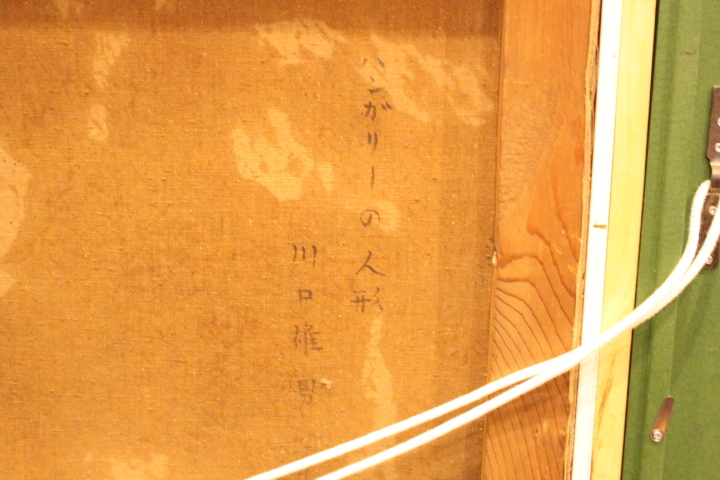 ハンガリーの人形
川口雄男